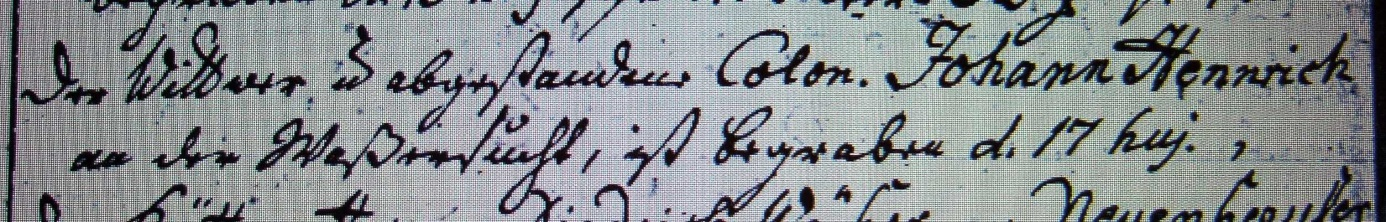 Der Wittwer u abgestandene Colon. Johann Hennrich
an der Waßersucht, ist begraben d. 17 huj.,